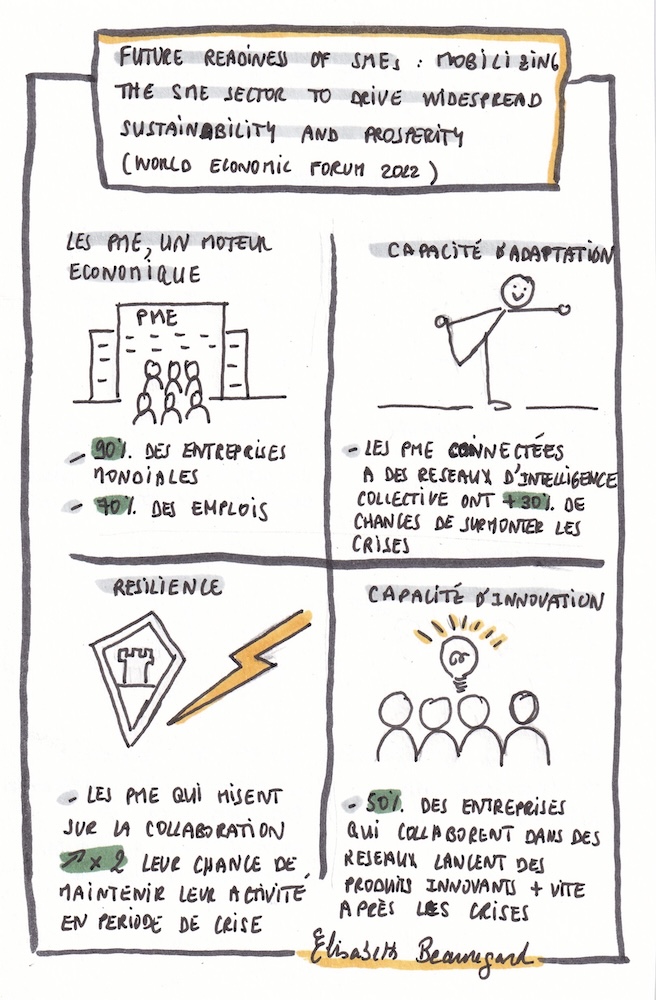 FUTURE READINESS OF SMEs : MOBILIZING
THE SME SECTOR TO DRIVE WIDESPREAD
SUSTAINABILITY AND PROSPERITY
(WORLD ECONOMIC FORUM 2022)
LES PME, UN MOTEUR
ECONOMIQUE
PME
- 90% DES ENTREPRISES
MONDIALES
- 70% DES EMPLOIS
CAPACITÉ D'ADAPTATION
- LES PME CONNECTÉES
A DES RESEAUX D'INTELLIGENCE
COLLECTIVE ONT +30% DE
CHANCES DE SURMONTER LES
CRISES
RESILIENCE
- LES PME QUI MISENT
SUR LA COLLABORATION
↗ x 2 LEUR CHANCE DE
MAINTENIR LEUR ACTIVITÉ
EN PERIODE DE CRISE
CAPACITÉ D'INNOVATION
- 50% DES ENTREPRISES
QUI COLLABORENT DANS DES
RESEAUX LANCENT DES
PRODUITS INNOVANTS + VITE
APRÈS LES CRISES
Elisabeth Beauregard